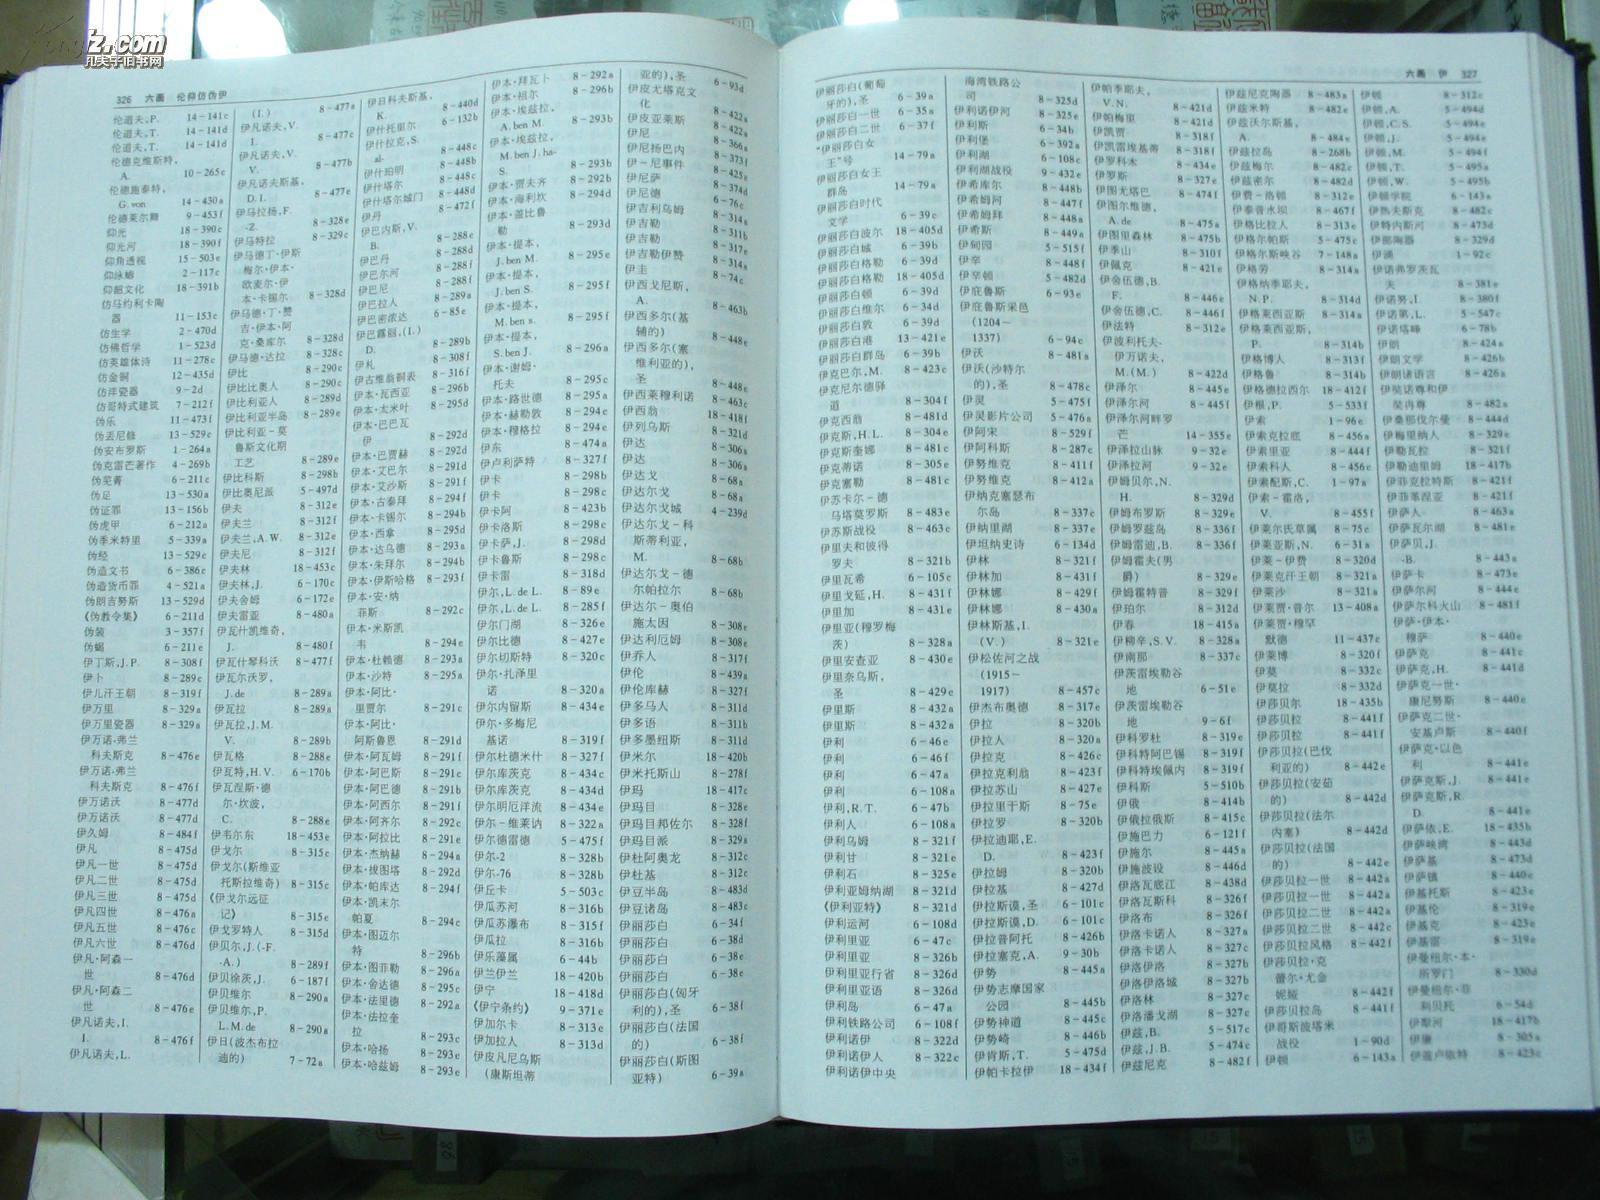 326 六画 伦仰仿伪伊
伦道夫,P. 14-141c
伦道夫,T. 14-141d
伦道夫,T. 14-141d
伦德克维斯特,
A. 10-265c
伦德施泰特,
G. von 14-430a
伦德莱尔舞 9-453f
仰光 18-390c
仰光河 18-390f
仰角透视 15-503e
仰泳蝽 2-117c
仰韶文化 18-391b
仿马约利卡陶
器 11-153c
仿生学 2-470d
仿佛哲学 1-523d
仿英雄体诗 11-278c
仿金铜 12-435d
仿洋瓷器 9-2d
仿哥特式建筑 7-212f
伪乐 11-473f
伪丢尼修 13-529c
伪安布罗斯 1-264a
伪克雷芒著作 4-269b
伪芜菁 6-211c
伪足 13-530a
伪证罪 13-156b
伪虎甲 6-212a
伪季米特里 5-339a
伪经 13-529c
伪造文书 6-386c
伪造货币罪 4-521a
伪朗吉努斯 13-529d
《伪教令集》 6-211d
伪装 3-357f
伪蝎 6-211e
伊丁斯,J.P. 8-308f
伊卜 8-289c
伊儿汗王朝 8-319f
伊万里 8-329a
伊万里瓷器 8-329a
伊万诺-弗兰
科夫斯克 8-476e
伊万诺-弗兰
科夫斯克 8-476f
伊万诺沃 8-477d
伊万诺沃 8-477d
伊久姆 8-484f
伊凡 8-475d
伊凡一世 8-475d
伊凡二世 8-475d
伊凡三世 8-475d
伊凡四世 8-476a
伊凡五世 8-476c
伊凡六世 8-476d
伊凡·阿森一
世 8-476d
伊凡·阿森二
世 8-476e
伊凡诺夫,I.
I. 8-476f
伊凡诺夫,L.
(I.) 8-477a
伊凡诺夫,V.
I. 8-477c
伊凡诺夫,V.
V. 8-477b
伊凡诺夫斯基,
D.I. 8-477e
伊马拉扬,F.
-Z. 8-328e
伊马特拉 8-329c
伊马德丁·伊斯
梅尔·伊本·
欧麦尔·伊
本·卡锡尔 8-328d
伊马德·丁·赞
吉·伊本·阿
克·桑库尔 8-328d
伊马德·达拉 8-328c
伊比 8-290c
伊比比奥人 8-290c
伊比利亚人 8-289d
伊比利亚半岛 8-289e
伊比利亚-莫
鲁斯文化期
工艺 8-289e
伊比科斯 8-298b
伊比奥尼派 5-497d
伊夫 8-312e
伊夫兰 8-312f
伊夫兰,A.W. 8-312e
伊夫尼 8-312f
伊夫林 18-453c
伊夫林,J. 6-170c
伊夫舍姆 6-172e
伊夫雷亚 8-480a
伊瓦什凯维奇,
J. 8-480f
伊瓦什琴科沃 8-477f
伊瓦尔沃罗,
J.de 8-289a
伊瓦拉 8-289a
伊瓦拉,J.M.
V. 8-289b
伊瓦格 8-288e
伊瓦特,H.V. 6-170b
伊瓦涅斯·德
尔·坎波,
C. 8-288e
伊韦尔东 18-453e
伊戈尔 8-315c
伊戈尔(斯维亚
托斯拉维奇) 8-315c
《伊戈尔远征
记》 8-315e
伊戈罗特人 8-315d
伊贝尔,J.(-F.
-A.) 8-289f
伊贝徐茨,J. 6-187f
伊贝维尔 8-290a
伊贝维尔,P.
L.M.de 8-290a
伊日(波杰布拉
迪的) 7-72a
伊日科夫斯基,
K. 8-440d
伊什托里尔 6-132b
伊什拉克,S.
al- 8-448c
伊什珀明 8-448b
伊什塔尔 8-448c
伊什塔尔城门 8-448d
伊丹 8-472f
伊巴内斯,V.
B. 8-288c
伊巴丹 8-288d
伊巴尔河 8-288f
伊巴尼 8-288f
伊巴拉人 8-289a
伊巴密浓达 6-85e
伊巴露丽,(I.)
D. 8-289b
伊札 8-308f
伊古维翁铜表 8-316f
伊本·瓦西亚 8-296b
伊本·太米叶 8-295d
伊本·巴巴瓦
伊 8-292d
伊本·巴贾赫 8-292d
伊本·艾巴尔 8-291d
伊本·艾沙斯 8-291f
伊本·古泰拜 8-294f
伊本·卡锡尔 8-294b
伊本·西拿 8-295d
伊本·达乌德 8-293a
伊本·朱拜尔 8-294b
伊本·伊斯哈格 8-293f
伊本·安·纳
菲斯 8-292c
伊本·米斯凯
韦 8-294e
伊本·杜赖德 8-293a
伊本·沙特 8-295a
伊本·阿比·
里贾尔 8-291c
伊本·阿比·
阿斯鲁恩 8-291d
伊本·阿瓦姆 8-291f
伊本·阿巴斯 8-291c
伊本·阿巴德 8-291b
伊本·阿西尔 8-291f
伊本·阿齐尔 8-292c
伊本·阿拉比 8-291e
伊本·杰纳赫 8-294a
伊本·拔图塔 8-292d
伊本·帕库达 8-294f
伊本·凯末尔
帕夏 8-294c
伊本·图迈尔
特 8-296b
伊本·图菲勒 8-296a
伊本·舍达德 8-295c
伊本·法里德 8-292a
伊本·法拉奎
拉 8-293c
伊本·哈扬 8-293e
伊本·哈兹姆 8-293e
伊本·拜瓦卜 8-292a
伊本·祖尔 8-296b
伊本·埃兹拉,
A.ben M. 8-293b
伊本·埃兹拉,
M.ben J.ha-
S. 8-293b
伊本·贾夫齐 8-292b
伊本·海利坎 8-294d
伊本·盖比鲁
勒 8-293d
伊本·提本,
J.ben M. 8-295e
伊本·提本,
J.ben S. 8-295f
伊本·提本,
M.ben s. 8-295f
伊本·提本,
S.ben J. 8-296a
伊本·谢姆·
托夫 8-295c
伊本·路世德 8-295a
伊本·赫勒敦 8-294c
伊本·穆格拉 8-294e
伊东 8-474a
伊卢利萨特 8-327f
伊卡 8-298b
伊卡 8-298c
伊卡阿 8-423b
伊卡洛斯 8-298c
伊卡萨,J. 8-298d
伊卡鲁斯 8-298c
伊卡雷 8-318d
伊尔,L.de L. 8-89e
伊尔,L.de L. 8-285f
伊尔门湖 8-326e
伊尔比德 8-427e
伊尔切斯特 8-320c
伊尔·扎泽里
诺 8-320a
伊尔内留斯 8-434e
伊尔·多梅尼
基诺 8-319f
伊尔杜德米什 8-327f
伊尔库茨克 8-434c
伊尔库茨克 8-434d
伊尔明厄洋流 8-434e
伊尔-维莱讷 8-322a
伊尔德雷德 5-475f
伊尔-2 8-328b
伊尔-76 8-328b
伊丘卡 5-503c
伊瓜苏河 8-316b
伊瓜苏瀑布 8-315f
伊瓜拉 8-316b
伊乐藻属 6-44b
伊兰伊兰 18-420b
伊宁 18-418d
《伊宁条约》 9-371e
伊加尔卡 8-313c
伊加拉人 8-313d
伊皮凡尼乌斯
(康斯坦蒂
亚的),圣 6-93d
伊皮尤塔克文
化 8-422a
伊皮亚莱斯 8-422a
伊尼 8-366a
伊尼扬巴内 8-373f
伊-尼事件 8-425e
伊尼萨 8-374d
伊尼德 6-76c
伊吉利乌姆 8-314a
伊吉勒 8-311b
伊吉勒 8-317e
伊吉勒伊赞 8-314a
伊圭 8-74c
伊西戈尼斯,
A. 8-463b
伊西多尔(基
辅的) 8-448e
伊西多尔(塞
维利亚的),
圣 8-448e
伊西莱穆利诺 8-463c
伊西翁 18-418f
伊列乌斯 8-321d
伊达 8-306a
伊达 8-306a
伊达戈 8-68a
伊达尔戈 8-68a
伊达尔戈城 4-239d
伊达尔戈-科
斯蒂利亚,
M. 8-68b
伊达尔戈-德
尔帕拉尔 8-68b
伊达尔-奥伯
施太因 8-308e
伊达利厄姆 8-308e
伊乔人 8-317f
伊伦 8-439a
伊伦库赫 8-327f
伊多马人 8-311d
伊多语 8-311b
伊多墨纽斯 8-311d
伊米尔 18-420b
伊米托斯山 8-278f
伊玛 18-417c
伊玛目 8-328e
伊玛目邦佐尔 8-328f
伊玛目派 8-329a
伊杜阿奥龙 8-312c
伊杜基 8-312c
伊豆半岛 8-483d
伊豆诸岛 8-483c
伊丽莎白 6-34f
伊丽莎白 6-38d
伊丽莎白 6-38e
伊丽莎白 6-38e
伊丽莎白(匈牙
利的),圣 6-38f
伊丽莎白(法国
的) 6-38f
伊丽莎白(斯图
亚特) 6-39a
六画 伊 327
伊丽莎白(葡萄
牙的),圣 6-39a
伊丽莎白一世 6-35a
伊丽莎白二世 6-37f
“伊丽莎白女
王”号 14-79a
伊丽莎白女王
群岛 14-79a
伊丽莎白时代
文学 6-39c
伊丽莎白波尔 18-405d
伊丽莎白城 6-39b
伊丽莎白格勒 6-39d
伊丽莎白格勒 18-405d
伊丽莎白顿 6-39d
伊丽莎白维尔 6-34d
伊丽莎白敦 6-39d
伊丽莎白港 13-421e
伊丽莎白群岛 6-39b
伊克巴尔,M. 8-423c
伊克尼尔德驿
道 8-304f
伊克西翁 8-481d
伊克斯,H.L. 8-304e
伊克斯奎娜 8-481c
伊克蒂诺 8-305e
伊克塞勒 8-481c
伊苏卡尔-德
马塔莫罗斯 8-483e
伊苏斯战役 8-463c
伊里夫和彼得
罗夫 8-321b
伊里瓦希 6-105c
伊里戈延,H. 8-431f
伊里加 8-431e
伊里亚(穆罗梅
茨) 8-328a
伊里安查亚 8-430e
伊里奈乌斯,
圣 8-429e
伊里斯 8-432a
伊里斯 8-432a
伊利 6-46e
伊利 6-46f
伊利 6-47a
伊利 6-108a
伊利,R.T. 6-47b
伊利人 6-108a
伊利乌姆 8-321f
伊利甘 8-321e
伊利石 8-325e
伊利亚姆纳湖 8-321d
《伊利亚特》 8-321d
伊利运河 6-108d
伊利里亚 6-47c
伊利里亚 8-326b
伊利里亚行省 8-326d
伊利里亚语 8-326d
伊利岛 6-47a
伊利铁路公司 6-108f
伊利诺伊 8-322d
伊利诺伊人 8-322c
伊利诺伊中央
海湾铁路公
司 8-325d
伊利诺伊河 8-325e
伊利斯 6-34b
伊利堡 6-392a
伊利湖 6-108c
伊利湖战役 9-432e
伊希库尔 8-448b
伊希姆河 8-447f
伊希姆拜 8-448a
伊希斯 8-449a
伊甸园 5-515f
伊辛 8-448f
伊辛顿 5-482d
伊庇鲁斯 6-93e
伊庇鲁斯采邑
(1204~
1337) 6-94c
伊沃 8-481a
伊沃(沙特尔
的),圣 8-478c
伊灵 5-475f
伊灵影片公司 5-476a
伊阿宋 8-529f
伊阿科斯 8-287c
伊努维克 8-411f
伊努维克 8-412a
伊纳克塞瑟布
尔岛 8-337c
伊纳里湖 8-337e
伊坦纳史诗 6-134d
伊林 8-321f
伊林加 8-431f
伊林娜 8-429f
伊林娜 8-430a
伊林斯基,I.
(V.) 8-321e
伊松佐河之战
(1915~
1917) 8-457c
伊杰布奥德 8-317e
伊拉 8-320b
伊拉人 8-320a
伊拉克 8-426c
伊拉克利翁 8-423f
伊拉苏山 8-427e
伊拉里于斯 8-75e
伊拉罗 8-320b
伊拉迪耶,E.
D. 8-423f
伊拉姆 8-320b
伊拉基 8-427d
伊拉斯谟,圣 6-101c
伊拉斯谟,D. 6-101c
伊拉普阿托 8-426b
伊拉塞克,A. 9-30b
伊势 8-445a
伊势志摩国家
公园 8-445b
伊势神道 8-445c
伊势崎 8-446b
伊肯斯,T. 5-475d
伊帕卡拉伊 18-434f
伊帕季耶夫,
V.N. 8-421d
伊帕梅里 8-421d
伊凯贾 8-318f
伊凯雷埃基蒂 8-318f
伊罗科木 8-434e
伊罗斯 8-327e
伊图尤塔巴 8-474f
伊图尔维德,
A.de 8-475a
伊图里森林 8-475b
伊季山 8-310f
伊佩克 8-421e
伊舍伍德,B.
F. 8-446e
伊舍伍德,C. 8-446f
伊法特 8-312e
伊波利托夫-
伊万诺夫,
M.(M.) 8-422d
伊泽尔 8-445e
伊泽尔河 8-445f
伊泽尔河畔罗
芒 14-355e
伊泽拉山脉 9-32e
伊泽拉河 9-32e
伊姆贝尔,N.
H. 8-329d
伊姆布罗斯 8-329e
伊姆罗兹岛 8-336f
伊姆雷迪,B. 8-336f
伊姆霍夫(男
爵) 8-329e
伊姆霍特普 8-329f
伊珀尔 8-312d
伊春 18-415a
伊柳辛,S.V. 8-328a
伊南那 8-337c
伊茨雷埃勒谷
地 6-51e
伊茨雷埃勒谷
地 9-6f
伊科罗杜 8-319e
伊科特阿巴锡 8-319f
伊科特埃佩内 8-319f
伊科斯 5-510b
伊俄 8-414b
伊俄拉俄斯 8-415c
伊施巴力 6-121f
伊施尔 8-445a
伊施波设 8-446d
伊洛瓦底江 8-438d
伊洛瓦斯科 8-326f
伊洛布 8-326f
伊洛卡诺人 8-327a
伊洛卡诺人 8-327c
伊洛伊洛 8-327b
伊洛伊洛城 8-327b
伊洛林 8-327c
伊洛潘戈湖 8-327c
伊兹,B. 5-517c
伊兹,J.B. 5-474c
伊兹尼克 8-482f
伊兹尼克陶器 8-483a
伊兹米特 8-482e
伊兹沃尔斯基,
A. 8-484e
伊兹拉岛 8-268b
伊兹梅尔 8-482c
伊兹密尔 8-482d
伊费-洛顿 8-312e
伊泰普水坝 8-467f
伊格比拉人 8-313e
伊格尔帕斯 5-475c
伊格尔斯峡谷 7-148a
伊格劳 8-314a
伊格纳季耶夫,
N.P. 8-314d
伊格莱西亚斯 8-314a
伊格莱西亚斯,
P. 8-314b
伊格博人 8-313f
伊格鲁 8-314b
伊格德拉西尔 18-412f
伊根,P. 5-533f
伊索 1-96e
伊索克拉底 8-456a
伊索里亚 8-444f
伊索科人 8-456c
伊索配斯,C. 1-97a
伊索-霍洛,
V. 8-455f
伊莱尔氏草属 8-75c
伊莱亚斯,N. 6-31a
伊莱-伊费 8-320d
伊莱克汗王朝 8-321a
伊莱沙 8-321a
伊莱贾·普尔 13-408a
伊莱贾·穆罕
默德 11-437c
伊莱博 8-320f
伊莫 8-332c
伊莫拉 8-332d
伊莎贝尔 18-435b
伊莎贝拉 8-441f
伊莎贝拉 8-441f
伊莎贝拉(巴伐
利亚的) 8-442e
伊莎贝拉(安茹
的) 8-442d
伊莎贝拉(法尔
内塞) 8-442d
伊莎贝拉(法国
的) 8-442e
伊莎贝拉一世 8-442a
伊莎贝拉一世 8-442a
伊莎贝拉二世 8-442a
伊莎贝拉二世 8-442c
伊莎贝拉风格 8-442f
伊莎贝拉·克
蕾尔·尤金
妮娅 8-442f
伊莎贝拉岛 8-441f
伊哥斯波塔米
战役 1-90d
伊顿 6-143a
伊顿 8-312c
伊顿,A. 5-494d
伊顿,C.S. 5-494e
伊顿,J. 5-494e
伊顿,M. 5-494f
伊顿,T. 5-495a
伊顿,W. 5-495b
伊顿学院 6-143a
伊热夫斯克 8-482c
伊特内斯河 8-473d
伊部陶器 8-329d
伊诺弗罗茨瓦
夫 8-381e
伊诺努,I. 8-380f
伊诺第,L. 5-547c
伊诺塔峰 6-78b
伊朗 8-424a
伊朗文学 8-426b
伊朗诸语言 8-426a
伊桑那伐尔曼 8-444d
伊梅里纳人 8-329e
伊勒瓦拉 8-321f
伊勒迪里姆 18-417b
伊菲克拉特斯 8-421f
伊菲革涅亚 8-421f
伊萨人 8-463a
伊萨瓦尔湖 8-481e
伊萨贝,J.
-B. 8-443a
伊萨卡 8-473e
伊萨尔河 8-444e
伊萨尔科火山 8-481f
伊萨·伊本·
穆萨 8-440e
伊萨克 8-441c
伊萨克,H. 8-441d
伊萨克一世·
康尼努斯 8-440e
伊萨克二世·
安基卢斯 8-440f
伊萨克·以色
利 8-441e
伊萨克斯,J. 8-441e
伊萨克斯,R.
D. 8-441e
伊萨依,E. 18-435b
伊萨峡湾 8-443d
伊萨基 8-473d
伊萨镇 8-440e
伊基托斯 8-423e
伊基伦 8-319e
伊基克 8-423e
伊基雷 8-319e
伊曼纽尔·本·
所罗门 8-330d
伊曼纽尔·菲
利贝托 6-54d
伊犁河 18-417b
伊康 8-305a
伊盖卢依特 8-423c